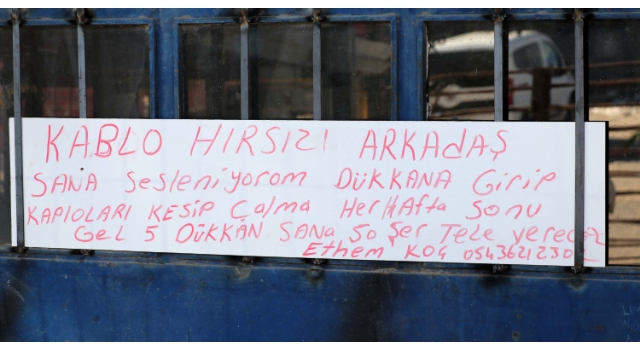 KABLO HIRSIZI ARKADAŞ
SANA SesleniYorom DÜKKANA Girip
KAPIOLARI KESİP ÇALMA HerHAfta Sonu
Gel 5 DÜKKÂN SANA 50 Şer Tele vereceZ
Ethem KOÇ